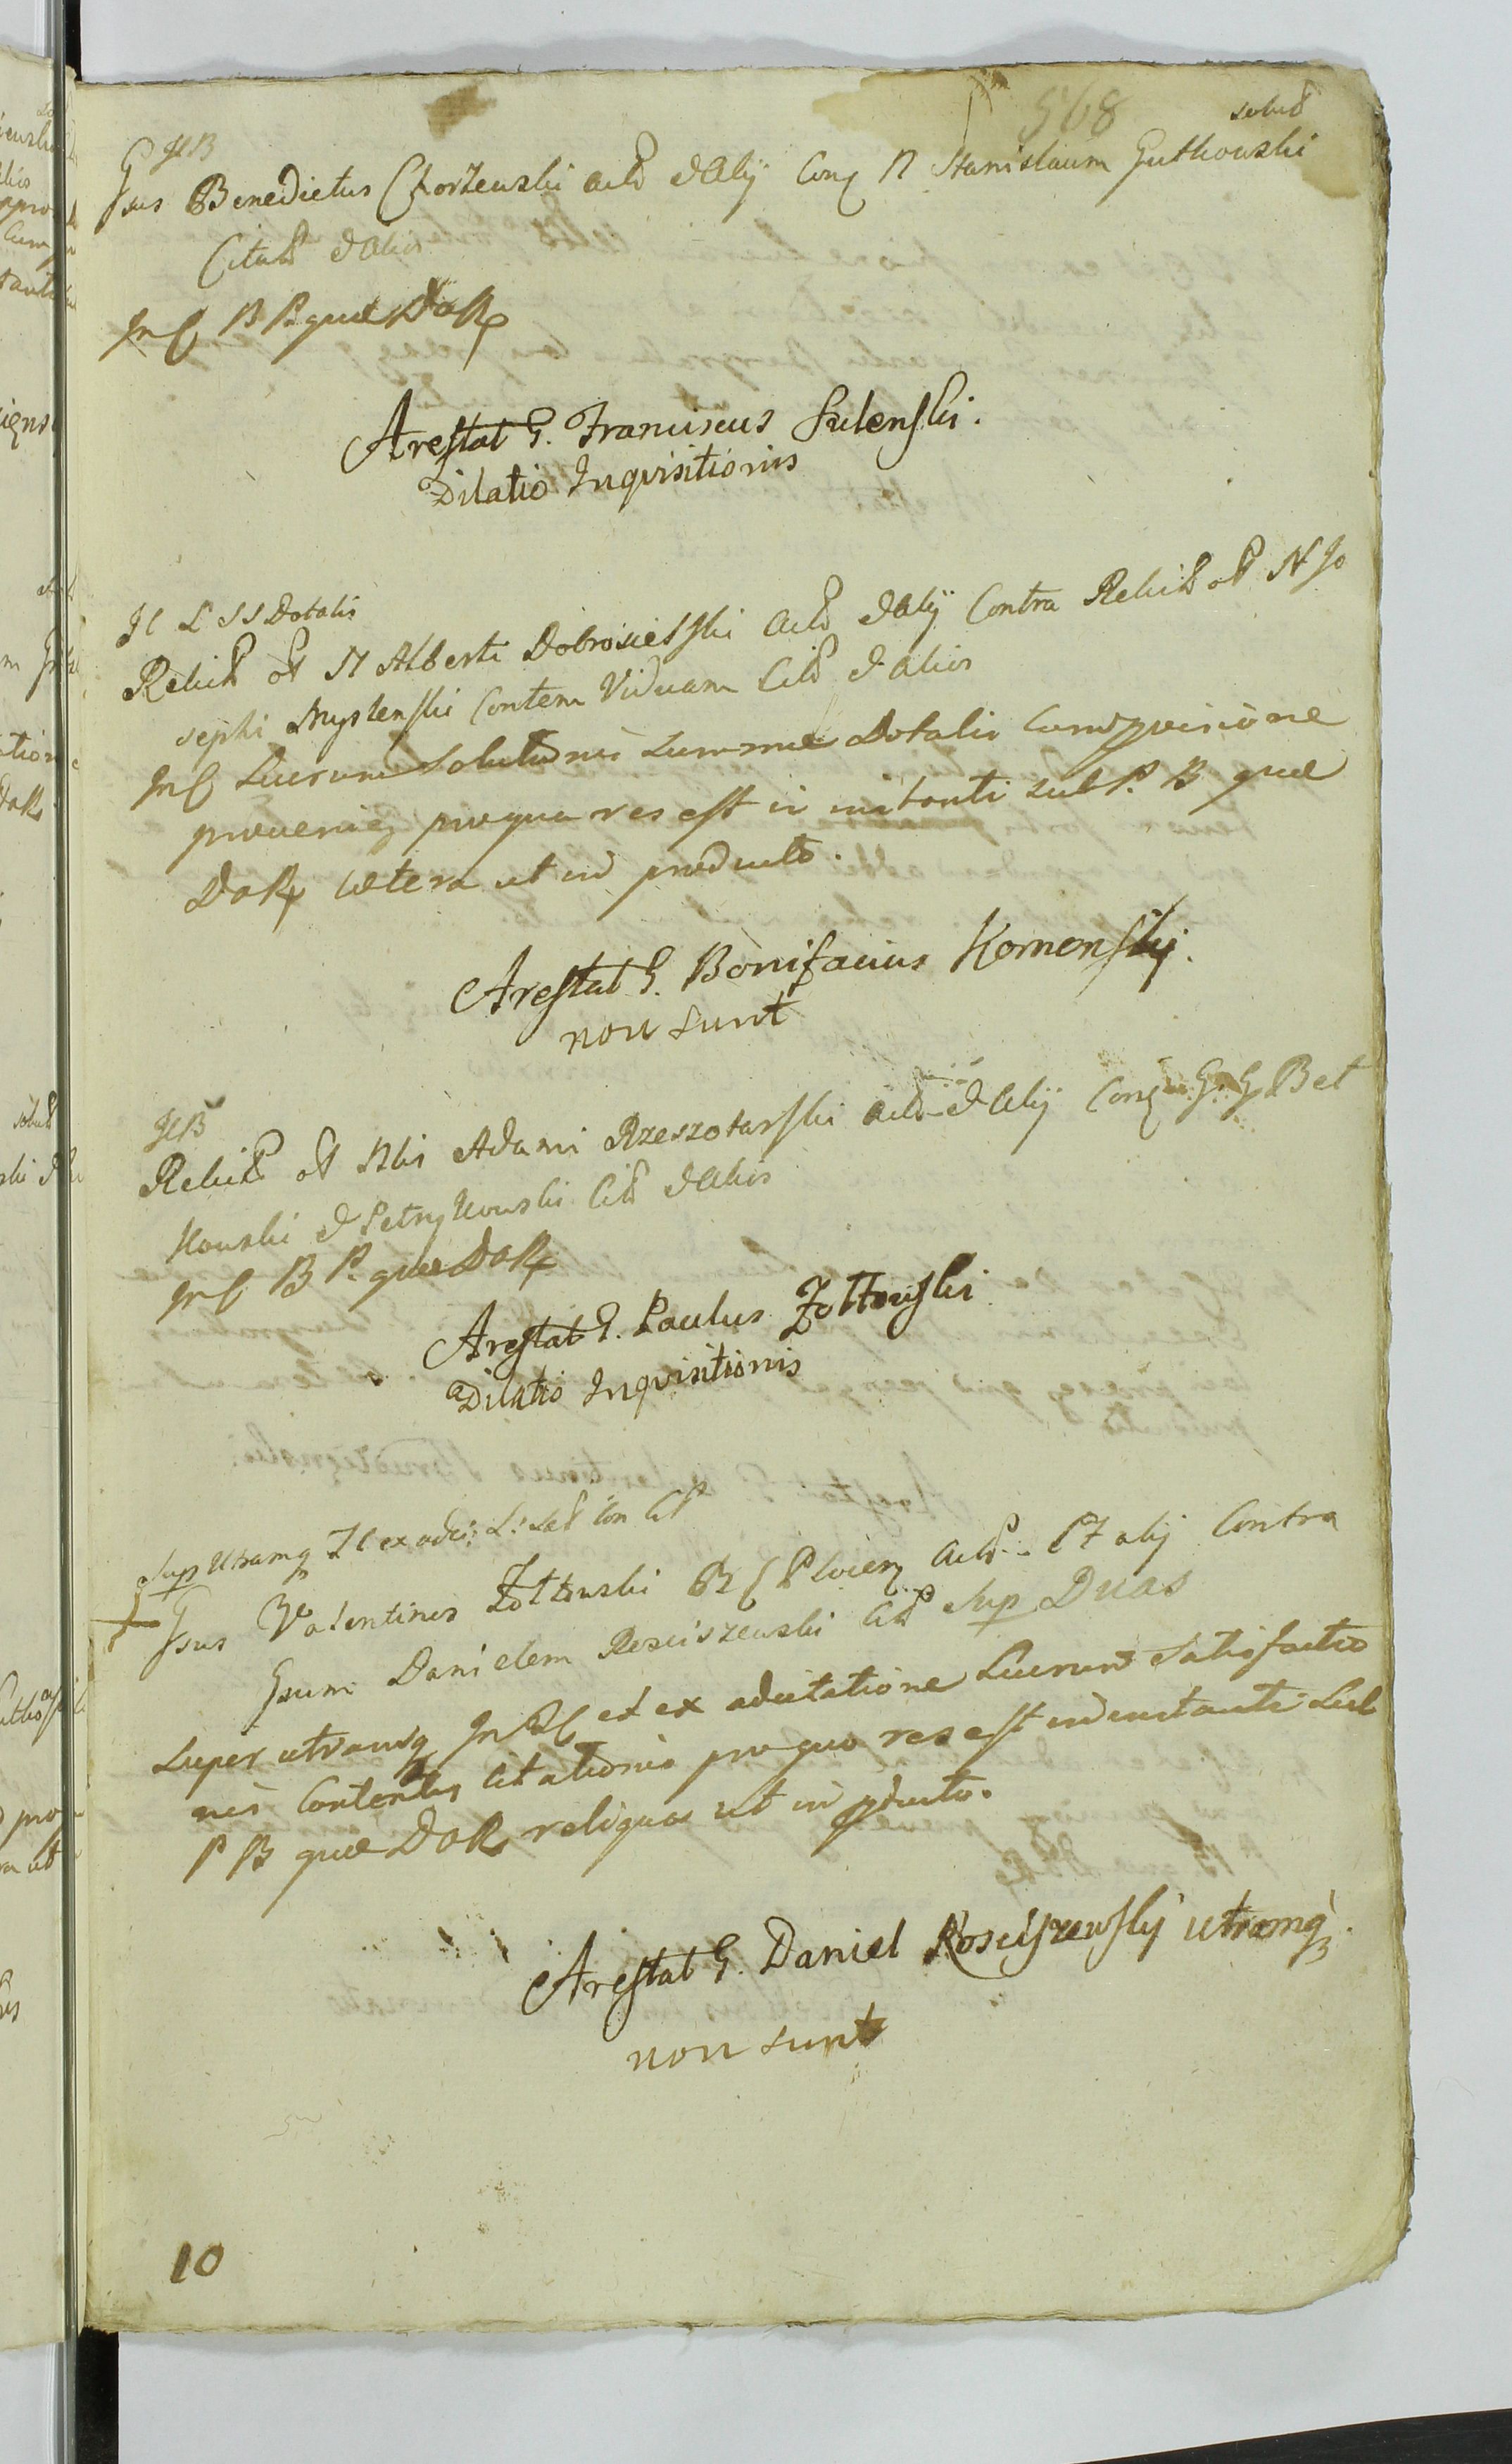 568
solut
JCB
Gsus Benedictus Chorzewski act et alij Cong N Stanislaum Gutkowski
Citat et alios
In C B P quae DaR
Arestat G. Franciscus Sulenski.
Dilatio Inqvisitionis
JC L SS Dotalis
Relict ol N Alberti Dobrosielski act et alij Contra Relict ol N Jo
sephi Myslenski Contem Viduam Cit et alios
In C Lucrum Solutionis Summae Dotalis cum provisione
proveniens pro qua res est in instanti sub P. B quae
DaR caetera ut in producto.
Arestat G. Bonifacius Komonskij.
non sunt
JCB
Relict ol Nlis Adami Rzeszotarski act et alij Cong G. G. Bet
kowski et Petrykowski Cit et alios
In C B P. quae DaR
Arestat G. Paulus Zottowski
Dilatio Inqvisitionis
Sup Utramq JC ex adci: L: Sat Con Cit
Gsus Valentinus Zottowski B C Plocien Act Et alij Contra
Gsum Danielem Rosciszewski Cit Sup Duas
Super utramq In C et ex adcitatione Lucrum Satisfactio
nis Contentis Citationis pro quo res est in instanti Sub
P B quae DaR reliqua ut in producto.
Arestat G. Daniel Rosciszewskij utramq.
non sunt
10